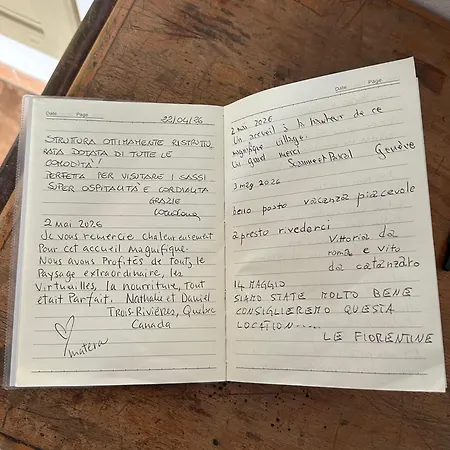 Date Page 22/04/26
STRUTTURA OTTIMAMENTE RISTRUTTU
RATA DOTATA DI TUTTE LE
COMODITA'!
PERFETTA PER VISITARE I SASSI
SUPER OSPITALITA' E CORDIALITA
GRAZIE
2 mai 2026
Je vous remercie chaleureusement
Pour cet accueil magnifique.
Nous avons Profités de Tout, le
Paysage extraordinaire, les
la nourriture, Tout
était Parfait. Nathalie et Daniel
Trois-Rivières, Québec
Canada
matera
Date Page
2 mai 2026
Un accueil à la hauteur de ce
magnifique village.
Un grand merci
Genève
3 mag 2026
bello posto vacanza piacevole
a presto rivederci
Vittoria da
roma e vito
da catanzaro
14 MAGGIO
SIAMO STATE MOLTO BENE
CONSIGLIEREMO QUESTA
LOCATION.....
LE FIORENTINE